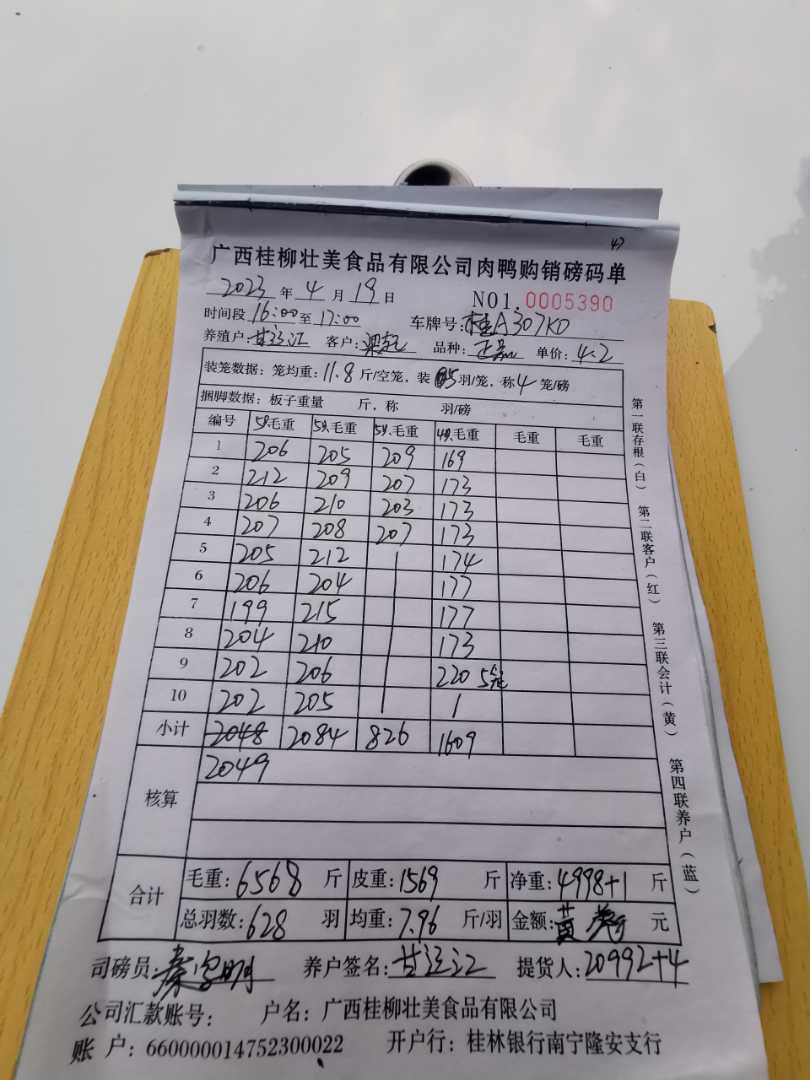 47
广西桂柳壮美食品有限公司肉鸭购销磅码单
2023 年 4 月 19 日 NO1. 0005390
时间段 16:00 至 17:00 车牌号: 桂A307K0
养殖户: 客户: 梁乾 品种: 单价: 4.2
装笼数据: 笼均重: 11.8 斤/空笼, 装 5 羽/笼, 称 4 笼/磅
捆脚数据: 板子重量 斤, 称 羽/磅
编号 毛重 毛重 毛重 毛重 毛重 毛重
1 206 205 209 169
2 212 209 207 173
3 206 210 203 173
4 207 208 207 173
5 205 212 174
6 206 204 177
7 199 215 177
8 204 210 173
9 202 206 220 5笼
10 202 205
小计 2048 2084 826 1609
核算 2049
合计 毛重: 6568 斤 皮重: 1569 斤 净重: 4998+1 斤
总羽数: 628 羽 均重: 7.96 斤/羽 金额: 元
司磅员: 养户签名: 提货人: 20992+4
公司汇款账号: 户名: 广西桂柳壮美食品有限公司
账 户: 660000014752300022 开户行: 桂林银行南宁隆安支行
第一联存根(白) 第二联客户(红) 第三联会计(黄) 第四联养户(蓝)